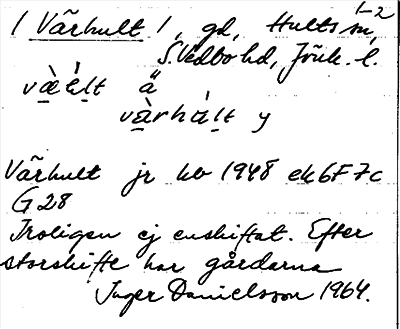 1-2
( Vårhult ), gd, Hults sn,
S. Vedbo hd, Jönk. l.
vä̀é̠l̠t ä
vä̀rhál̠t y
Vårhult jr kb 1948 ek 6F7c
G 28
Troligen ej enskiftat. Efter
storskifte har gårdarna
Inger Danielsson 1964.